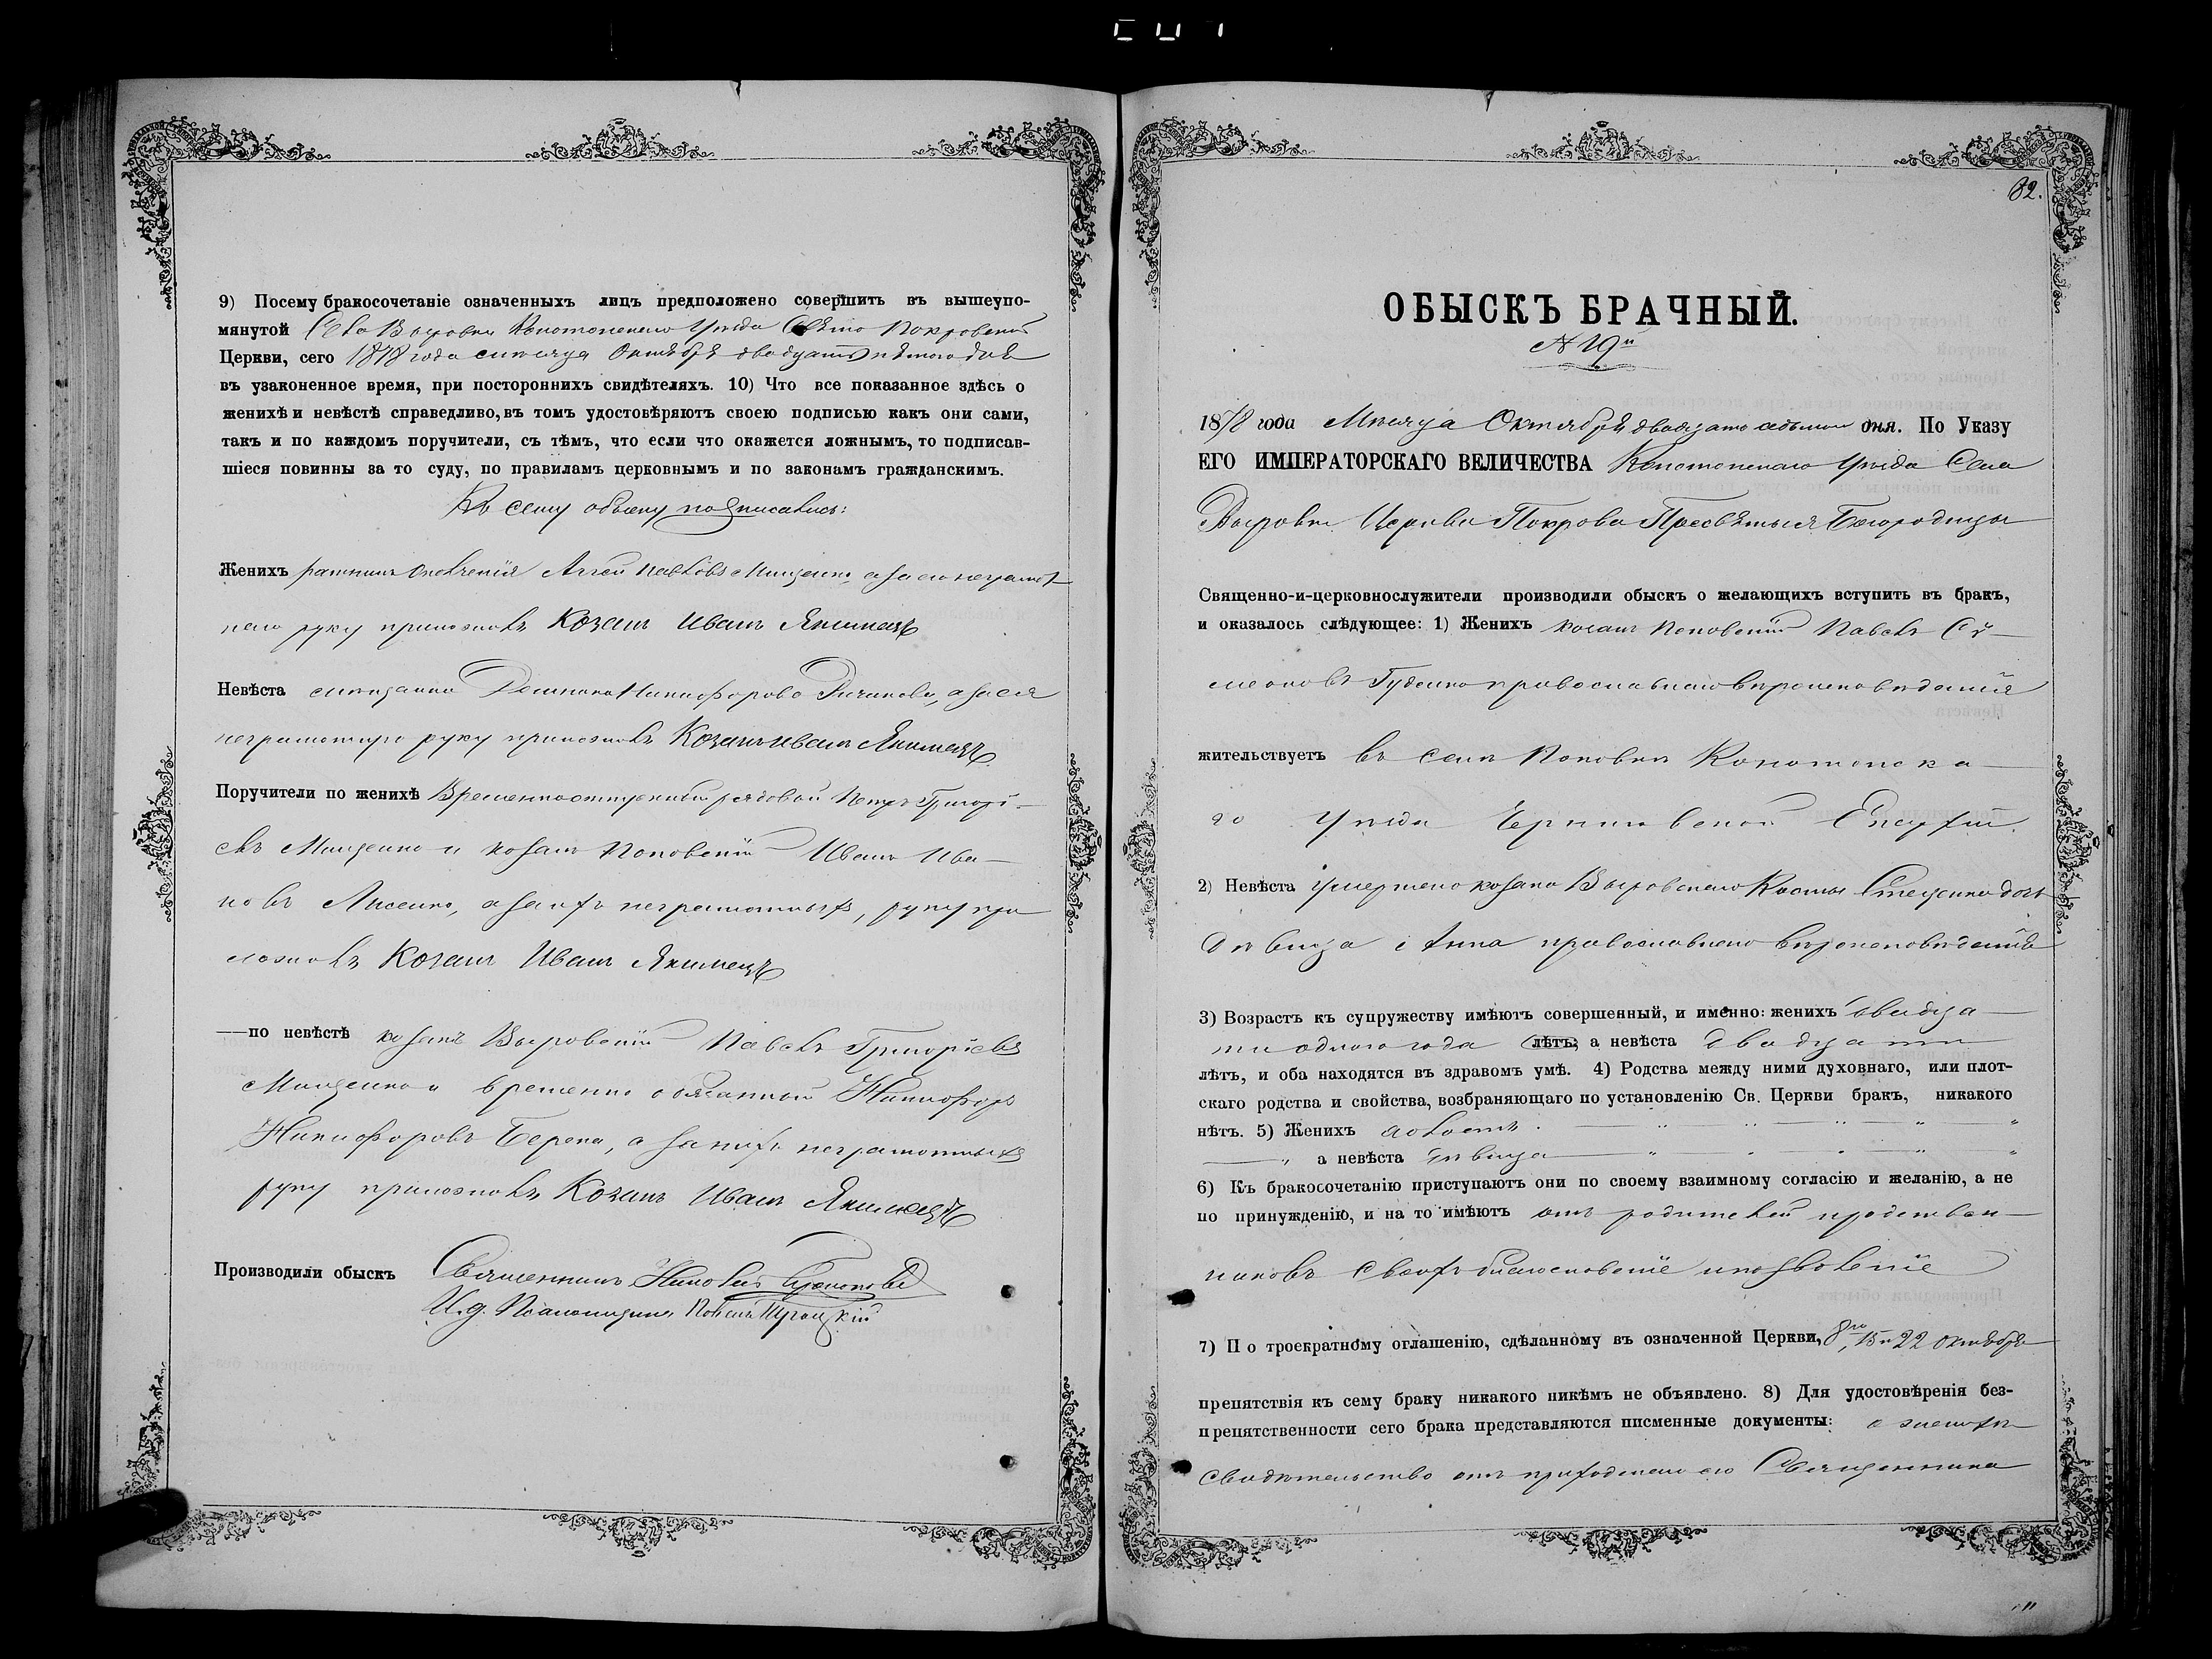 9) Посему бракосочетаніе означенныхъ лицъ предположено совершить въ вышеупо-
мянутой Села Выровки Конотопскаго Уѣзда Свято Покровской
Церкви, сего 1878 года мѣсяца Октября двадцать пятого дня
въ узаконенное время, при постороннихъ свидѣтеляхъ. 10) Что все показанное здѣсь о
женихѣ и невѣстѣ справедливо, въ томъ удостовѣряютъ своею подписью какъ они сами,
такъ и по каждомъ поручители, съ тѣмъ, что если что окажется ложнымъ, то подписав-
шіеся повинны за то суду, по правиламъ церковнымъ и по законамъ гражданскимъ.
Къ сему обыску подписались:
Женихъ ратникъ ополченія Павловъ Мищенко, а за его неграмот
наго руку приложилъ Козакъ Иванъ Якимецъ
Невѣста Никифорова а за ея
неграмотную руку приложилъ Козакъ Иванъ Якимецъ
Поручители по женихѣ Временноотпускный рядовой Петръ Григорі-
евъ Мищенко и козакъ Поповскій Иванъ Ива-
новъ Лисенко, а за ихъ неграмотныхъ, руку при
ложилъ Козакъ Иванъ Якимецъ
— по невѣстѣ козакъ Выровскій Павелъ Григоріевъ
Мищенко и временно обязанный Никифоръ
Никифоровъ Берека, а за нихъ неграмотныхъ
руку приложилъ Козакъ Иванъ Якимецъ
Производили обыскъ Священникъ
И. д. Псаломщика
82.
ОБЫСКЪ БРАЧНЫЙ.
№ 19й
1878 года Мѣсяца Октября двадцать седьмаго дня. По Указу
ЕГО ИМПЕРАТОРСКАГО ВЕЛИЧЕСТВА Конотопскаго Уѣзда Села
Выровки Церкви Покрова Пресвятыя Богородицы
Священно-и-церковнослужители производили обыскъ о желающихъ вступить въ бракъ,
и оказалось слѣдующее: 1) Женихъ козакъ Поповскій Павелъ Сѵ-
меоновъ Гуденко православнаго вѣроисповѣданія
жительствуетъ въ селѣ Поповкѣ Конотопска-
го Уѣзда Черниговской Епархіи.
2) Невѣста умершаго козака Выровскаго Космы Стеценка дочь
дѣвица Анна православнаго вѣроисповѣданія
3) Возрастъ къ супружеству имѣютъ совершенный, и именно: женихъ двадца-
ти одного года лѣтъ, а невѣста двадцати
лѣтъ, и оба находятся въ здравомъ умѣ. 4) Родства между ними духовнаго, или плот-
скаго родства и свойства, возбраняющаго по установленію Св. Церкви бракъ, никакого
нѣтъ. 5) Женихъ холостъ
а невѣста дѣвица
6) Къ бракосочетанію приступаютъ они по своему взаимному согласію и желанію, а не
по принужденію, и на то имѣютъ отъ родителей и родствен-
никовъ своихъ благословеніе и позволеніе
7) По троекратному оглашенію, сдѣланному въ означенной Церкви, 8го, 15 и 22 октября
препятствія къ сему браку никакого никѣмъ не объявлено. 8) Для удостовѣренія без-
препятственности сего брака представляются писменные документы: о женихѣ
свидѣтельство отъ приходскаго его Священника